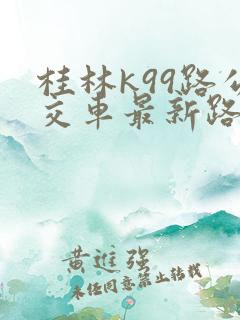 桂林k99路公
交车最新路
黄进强
未经同意禁止转载